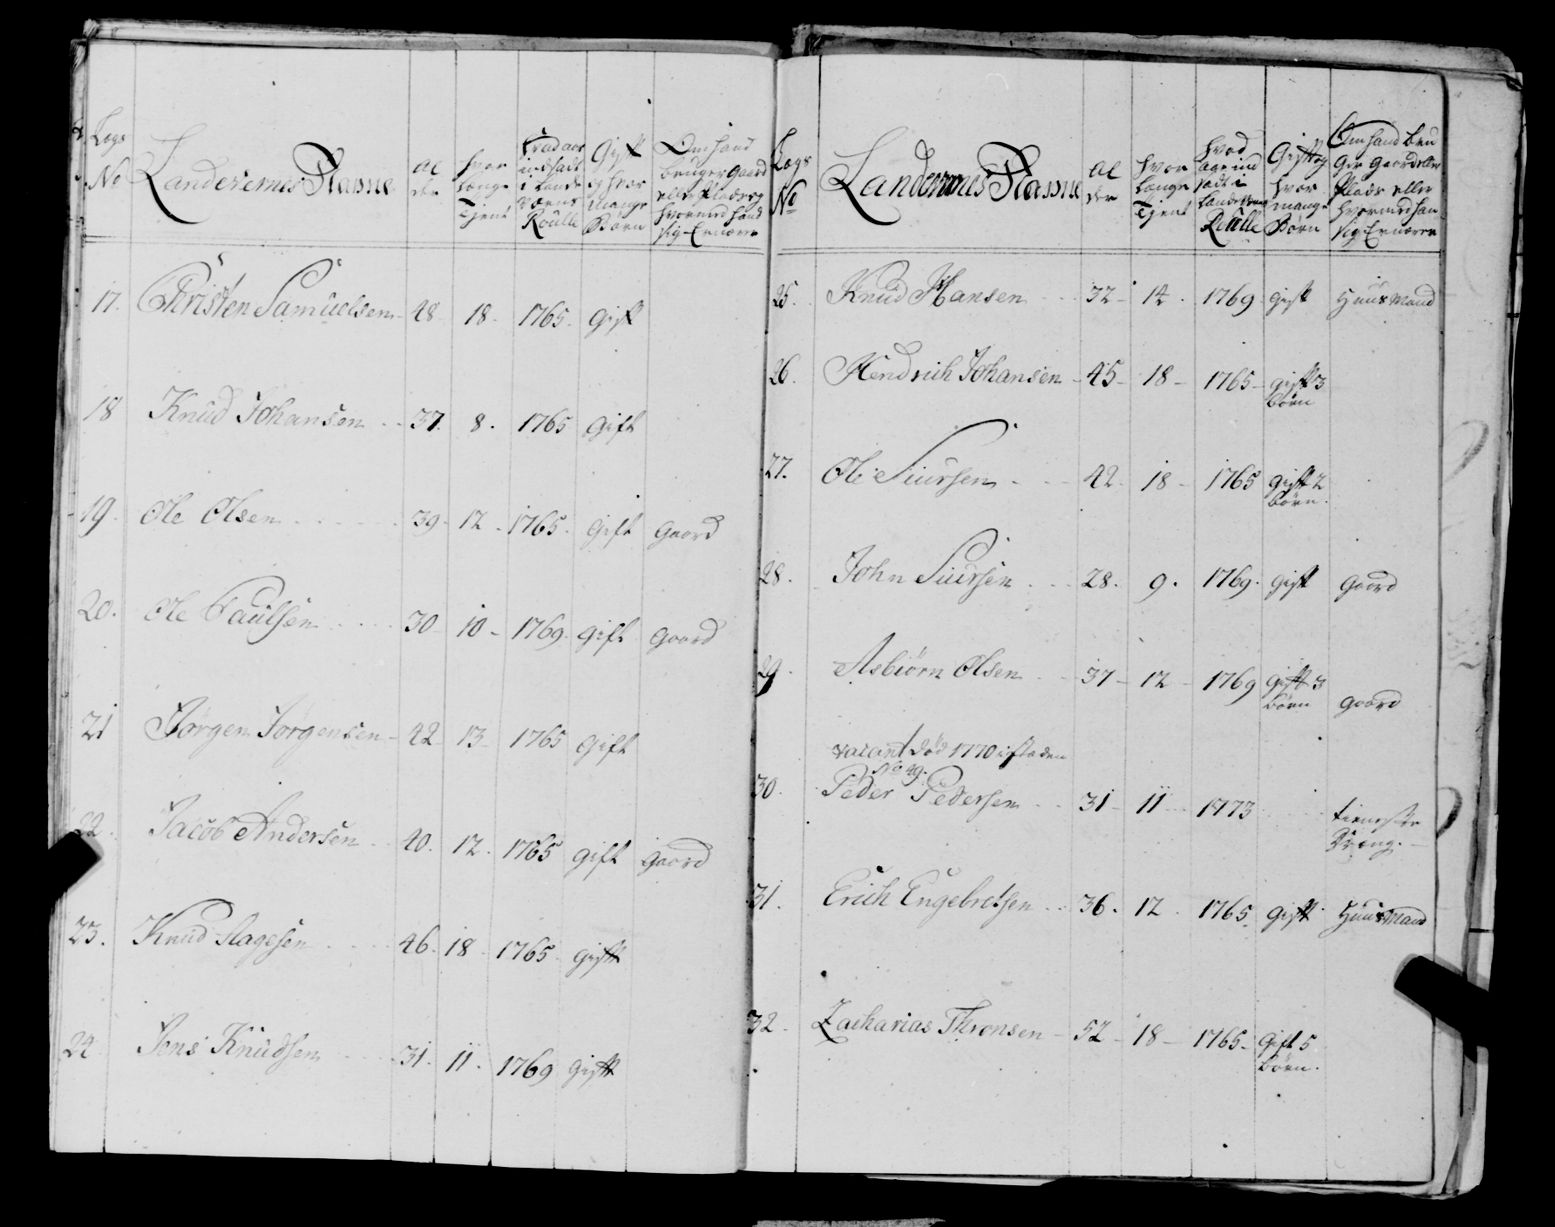 Legs
No
Landevernes Nafne
Al
der
hvor
længe
Tjent
hvad aar
indsadt
i Lands
Værns
Roulle
Gift
og hvor
Mange
Børn
Om hand
bruger gaard
eller Plads og
hvormed hand
sig Ernærer
17. Christen Samuelsen 48 18. 1765. Gift
18 Knud Johansen 37. 8. 1765 Gift
19. Ole Olsen 39. 12. 1765. Gift Gaard
20. Ole Paulsen 30 10 1769. Gift Gaard
21 Jørgen Jørgensen 42 13 1765 Gift
22. Jacob Andersen 40. 12. 1765 Gift Gaard
23. Knud Slagesen 46. 18 1765 Gift
24 Jens Knudsen 31. 11. 1769 Gift
Legs
No
Landevernes Nafne
Al
der
hvor
længe
Tjent
hvad
aar ind
sadt i
Lande Vernes
Roulle
Gift og
hvor
mange
Børn
Om hand bru
ger Gaard eller
Plads eller
hvormed han
sig Ernærer
25. Knud Hansen 32 14. 1769 Gift Huusmand
26. Hendrich Johansen 45 18 1765 gift 3
Børn
27. Ole Siursen 42. 18 1765 gift 2
Børn.
28. John Siursen 28. 9. 1769. gift Gaard
29. Asbiørn Olsen 37 12 1769 Gift 3
Børn Gaard
vacant død 1770 i stæden
No 49.
30. Peder Pedersen 31 11 1773 tieneste
Dræng.
31. Erich Engebretsen 36. 12. 1765 Gift Huusmand
32. Zacharias Thronsen 52 18 1765 Gift 5
Børn.